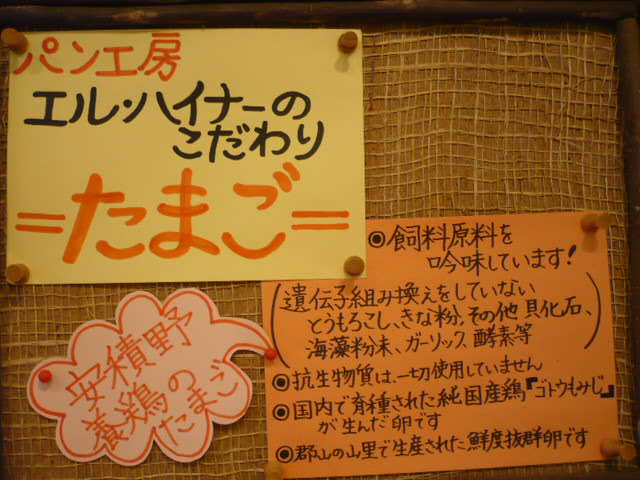 パン工房
エル・ハイナーの
こだわり
=たまご=
◉飼料原料を
吟味しています!
(遺伝子組み換えをしていない
とうもろこし、きな粉、その他 貝化石、
海藻粉末、ガーリック、酵素等)
◉抗生物質は、一切使用していません
◉国内で育種された純国産鶏『ゴトウもみじ』
が生んだ卵です
◉郡山の山里で生産された鮮度抜群卵です
安積野
養鶏の
たまご